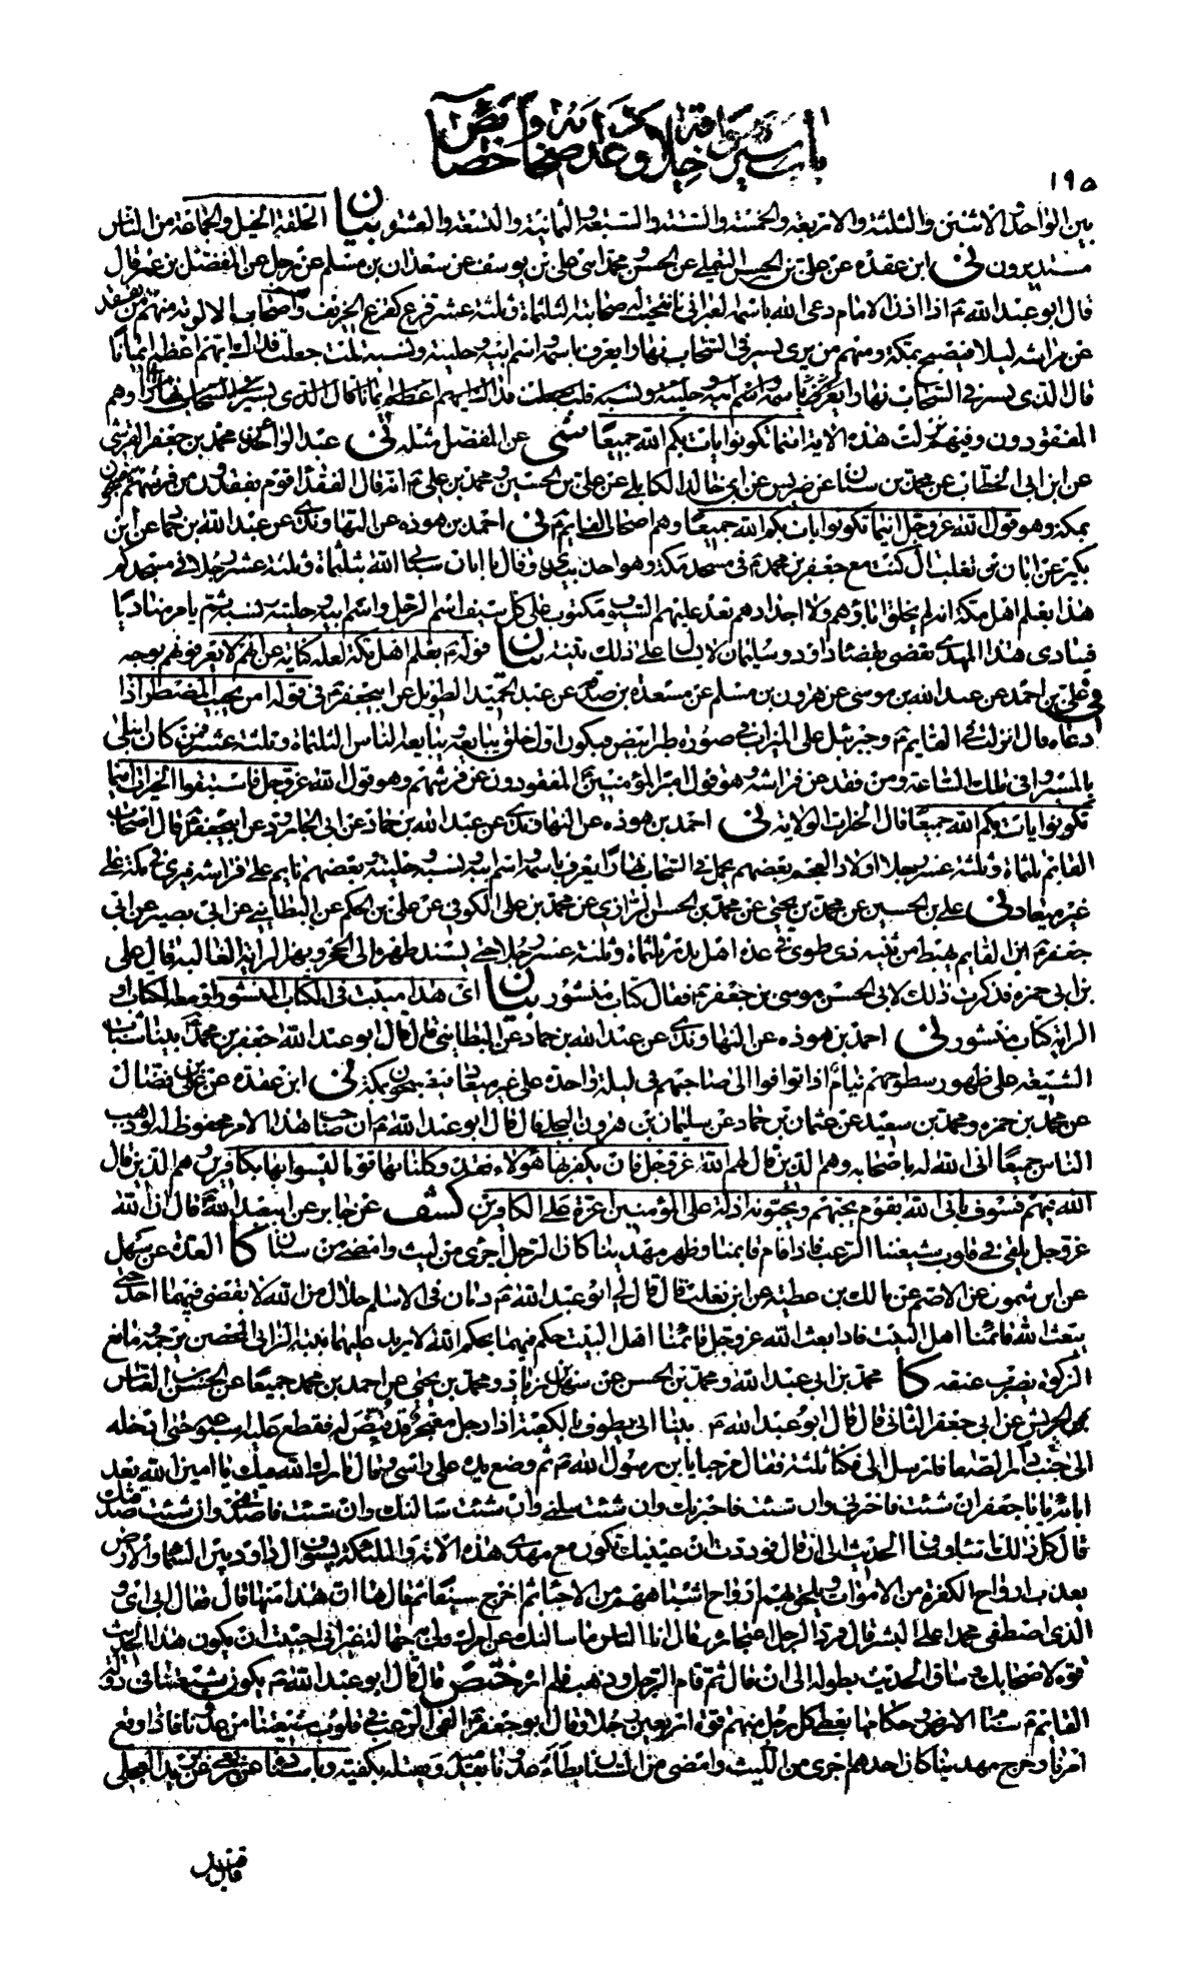 باب سيره و اخلاقه و عدد اصحابه و خصائص
١٩٥
بين الواحد والاثنين والثلثة والاربعة والخمسة والستة والسبعة والثمانية والتسعة والعشرة بيان الحلقة الخيل والجماعة من الناس
مستديرون نى ابن عقدة عن على بن الحسن التيملى عن الحسن ومحمد ابنى على بن يوسف عن سعدان بن مسلم عن رجل عن المفضل بن عمر قال
قال ابو عبد الله ع اذا اذن الامام دعى الله باسمه العبرانى فاتيحت له صحابته الثلثمائة وثلثة عشر قزع كقزع الخريف واصحاب الالوية منهم من يفقد
عن فراشه ليلا فيصبح بمكة ومنهم من يرى يسير فى السحاب نهارا يعرف باسمه واسم ابيه وحليته ونسبه قلت جعلت فداك ايهم اعظم ايمانا
قال الذى يسير فى السحاب نهارا وهم
المفقودون وفيهم نزلت هذه الاية اينما تكونوا يات بكم الله جميعا شى عن المفضل مثله نى عبد الواحد عن محمد بن جعفر القرشى
عن ابن ابى الخطاب عن محمد بن سنان عن ضريس عن ابى خالد الكابلى عن على بن الحسين ومحمد بن على ع انه قال الفقداء قوم يفقدون من فرشهم فيصبحون
بمكة وهو قول الله عز وجل اينما تكونوا يات بكم الله جميعا وهم اصحاب القايم ع نى احمد بن هوذه عن النهاوندى عن عبد الله بن حماد عن ابن
بكير عن ابان بن تغلب قال كنت مع جعفر بن محمد ع فى مسجد مكة وهو اخذ بيدى وقال يا ابان سياتى الله بثلثمائة وثلثة عشر رجلا فى مسجدكم
هذا يعلم اهل مكة انه لم يخلق اباؤهم ولا اجدادهم بعد عليهم السيوف مكتوب على كل سيف اسم الرجل واسم ابيه وحليته ونسبه ثم يامر مناديا
فينادى هذا المهدى يقضى بقضاء داود وسليمان لا يسال على ذلك بينة بيان قوله ع يعلم اهل مكة لعله كناية عن انهم لا يعرفونهم بوجه
نى على بن احمد عن عبيد الله بن موسى عن هرون بن مسلم عن مسعدة بن صدقة عن عبد الحميد الطويل عن ابيجعفر ع فى قوله امن يجيب المضطر اذا
دعاه قال انزلت فى القايم ع وجبرئيل على الميزاب فى صورة طير ابيض فيكون اول خلق يبايعه ويبايعه الناس الثلثمائة وثلثة عشر فمن كان ابتلى
بالمسير وافى تلك الساعة ومن فقد عن فراشه وهو قول امير المؤمنين ع المفقودون عن فرشهم وهو قول الله عز وجل فاستبقوا الخيرات اينما
تكونوا يات بكم الله جميعا قال الخيرات الولاية نى احمد بن هوذه عن النهاوندى عن عبد الله بن حماد عن ابى الجارود عن ابيجعفر ع قال اصحاب
القايم ثلثمائة وثلثة عشر رجلا اولاد العجم بعضهم يحمل فى السحاب نهارا يعرف باسمه واسم ابيه ونسبه وحليته وبعضهم نايم على فراشه فيرى فى مكة على
غير ميعاد نى على بن الحسين عن محمد بن يحيى عن محمد بن الحسن الرازى عن محمد بن على الكوفى عن على بن الحكم عن البطاينى عن ابى بصير عن ابى
جعفر ع ان القايم يهبط من ثنية ذى طوى فى عدة اهل بدر ثلثمائة وثلثة عشر رجلا حتى يسند ظهره الى الحجر ويهز الراية الغالبة قال على
بن ابى حمزه فذكرت ذلك لابى الحسن موسى بن جعفر ع فقال كتاب منشور بيان اى هذا مثبت فى الكتاب المنشور او معه الكتاب او
الراية كتاب منشور نى احمد بن هوذه عن النهاوندى عن عبد الله بن حماد عن البطاينى قال قال ابو عبد الله جعفر بن محمد ع بينا شباب
الشيعة على ظهور سطوحهم نيام اذا توافوا الى صاحبهم فى ليلة واحدة على غير ميعاد فيصبحون بمكة نى ابن عقدة عن على بن فضال
عن محمد بن حمزه ومحمد بن سعيد عن عثمان بن حماد عن سليمان بن هرون البجلى قال قال ابو عبد الله ع ان صاحب هذا الامر محفوظ له لو ذهب
الناس جميعا اتى الله له باصحابه وهم الذين قال لهم الله عز وجل فان يكفر بها هؤلاء فقد وكلنا بها قوما ليسوا بها بكافرين وهم الذين قال
الله فيهم فسوف ياتى الله بقوم يحبهم ويحبونه اذلة على المؤمنين اعزة على الكافرين كشف عن جابر عن ابيعبد الله ع قال ان الله
عز وجل يلقى فى قلوب شيعتنا الرعب فاذا قام قايمنا وظهر مهدينا كان الرجل اجرى من ليث وامضى من سنان كا العدة عن سهل
عن ابن شمون عن الاصم عن مالك بن عطية عن ابن تغلب قال قال لى ابو عبد الله ع دمان فى الاسلم حلال من الله لا يقضى فيهما احد حتى
يبعث الله قائمنا اهل البيت فاذا بعث الله عز وجل قائمنا اهل البيت حكم فيهما بحكم الله لا يريد عليهما بينة الزانى المحصن يرجمه ومانع
الزكوة يضرب عنقه كا محمد بن ابى عبد الله ومحمد بن الحسن عن سهل بن زياد ومحمد بن يحيى عن احمد بن محمد جميعا عن الحسن بن العباس
بن الحريش عن ابى جعفر الثانى قال قال ابو عبد الله ع بينا ابى يطوف بالكعبة اذا رجل معتجر قد قيض له فقطع عليه اسبوعه حتى ادخله
الى دار جنب الصفا فارسل الى فكنا ثلثة فقال مرحبا يا بن رسول الله ع ثم وضع يده على راسى وقال بارك الله فيك يا امين الله بعد
ابائه يا با جعفر ان شئت فاخبرنى وان شئت فاخبرتك وان شئت سلنى وان شئت سالتك وان شئت فاصدقنى وان شئت صدقتك
قال كل ذلك اشاء وساق الحديث الى ان قال فوددت ان عينيك تكون مع مهدى هذه الامة والملئكة بسيوف ال داود بين السماء والارض
يعذب ارواح الكفرة من الاموات ويلحق بهم ارواح اشباههم من الاحياء ثم اخرج سيفا ثم قال ها ان هذا منها قال فقال ابى اى و
الذى اصطفى محمدا على البشر قال فرد الرجل اعتجاره وقال انا الياس ما سالتك عن امرك ولى به جهالة غير انى احببت ان يكون هذا الحديث
قوة لاصحابك وساق الحديث بطوله الى ان قال ثم قام الرجل وذهب فلم اره ختص قال قال ابو عبد الله ع يكون شيعتنا فى دولة
القايم ع سنام الارض وحكامها يعطى كل رجل منهم قوة اربعين رجلا وقال ابو جعفر ع القى الرعب فى قلوب شيعتنا من عدونا فاذا وقع
امرنا وخرج مهدينا كان احدهم اجرى من الليث وامضى من السنان يطا عدونا بقدميه ويقتله بكفيه وباسناده عن بريد العجلى
قال قيل